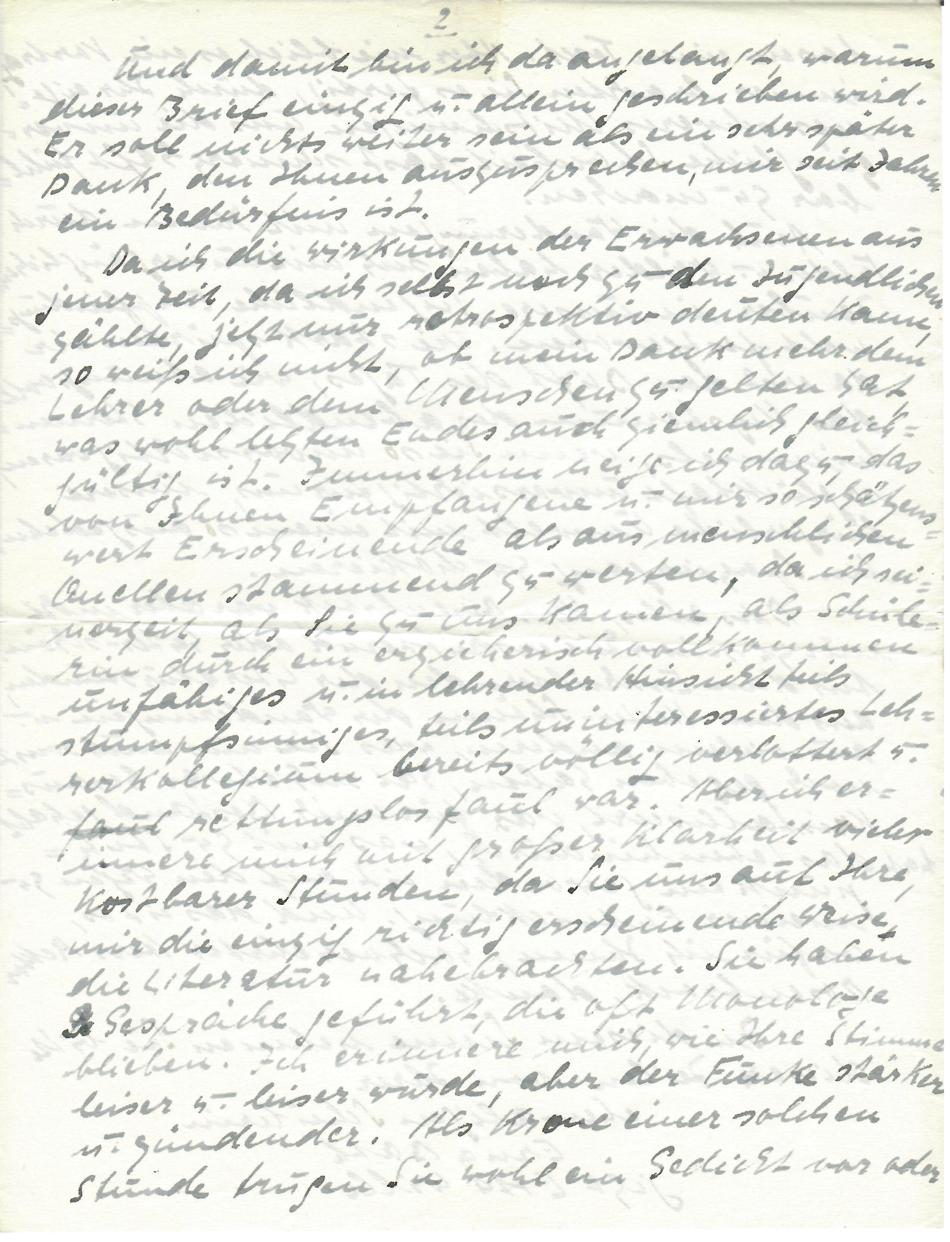 2
Und damit bin ich da angelangt, warum
dieser Brief einzig u. allein geschrieben wird.
Er soll nichts weiter sein als ein sehr später
Dank, den Ihnen auszusprechen, mir seit Jahren
ein Bedürfnis ist.
Da ich die Wirkungen der Erwachsenen aus
jener Zeit, da ich selbst noch zu den Jugendlichen
zählte, jetzt nur retrospektiv deuten kann,
so weiß ich nicht, ob mein Dank mehr dem
Lehrer oder dem Menschen zu gelten hat,
was wohl letzten Endes auch ziemlich gleich=
gültig ist. Immerhin neige ich dazu, das
von Ihnen Empfangene u. mir so schätzens=
wert Erscheinende als aus menschlichen
Quellen stammend zu werten, da ich sei=
nerzeit, als Sie zu uns kamen, als Schüle=
rin durch ein erzieherisch vollkommen
unfähiges u. in lehrender Hinsicht teils
stumpfsinniges, teils uninteressiertes Leh=
rerkollegium bereits völlig verlottert u.
faul rettungslos faul war. Aber ich er=
innere mich mit großer Klarheit vieler
kostbarer Stunden, da Sie uns auf Ihre,
mir die einzig richtig erscheinende Weise,
die Literatur nahebrachten. Sie haben
Gespräche geführt, die oft Monologe
blieben. Ich erinnere mich, wie Ihre Stimme
leiser u. leiser wurde, aber der Funke stärker
u. zündender. Als Krone einer solchen
Stunde trugen Sie wohl ein Gedicht vor oder